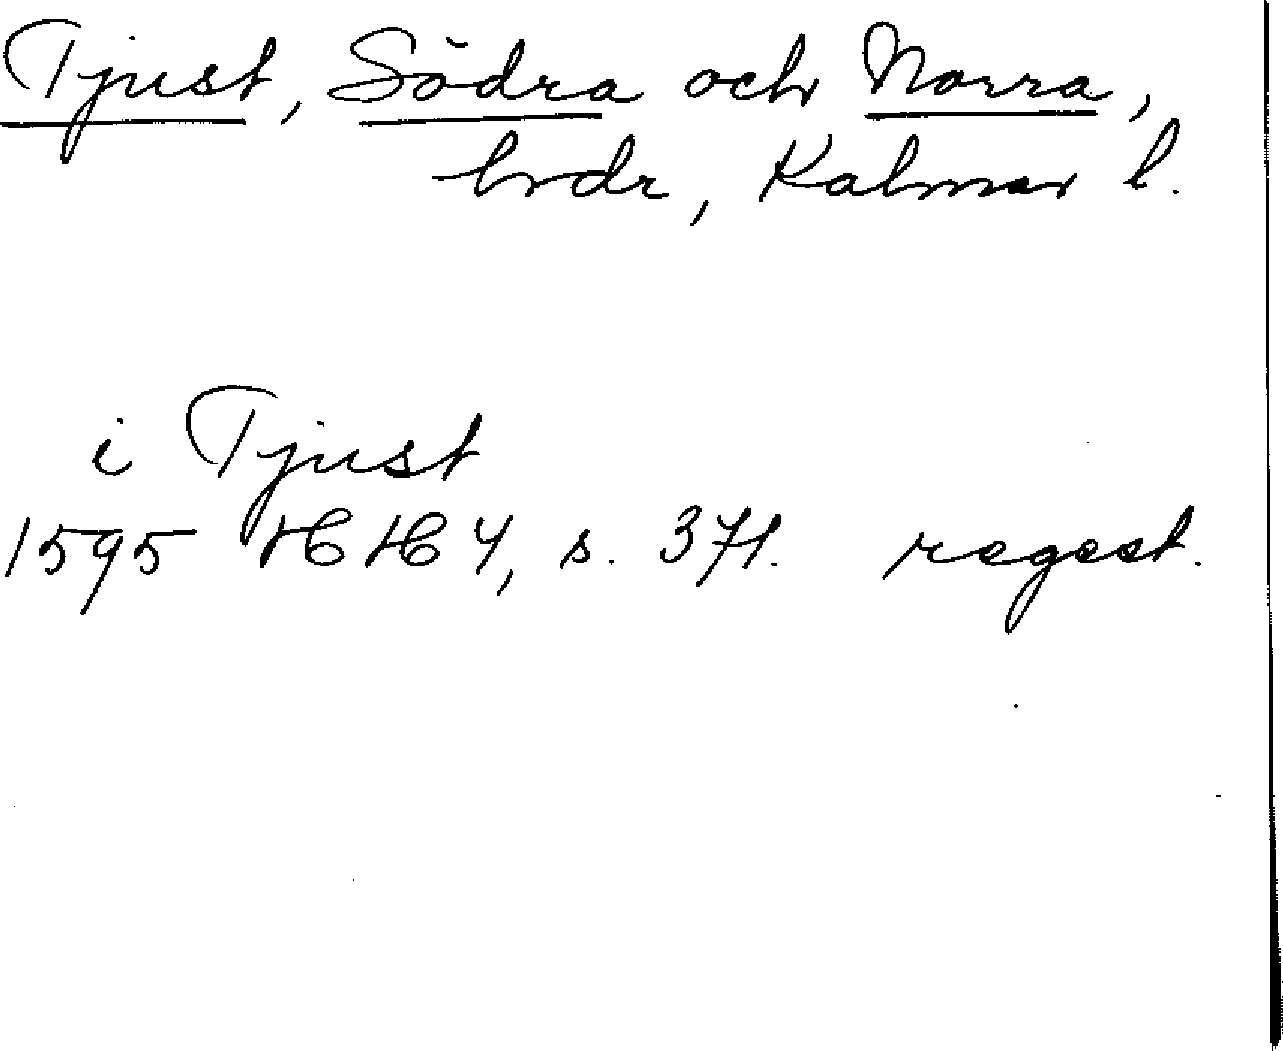 Tjust, Södra och Norra,
hrdr, Kalmar l.
i Tjust
1595 HH 4, s. 371. regest.